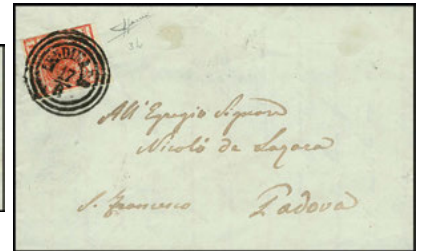 17
All' Egregio Signore
Nicolò de Lazara
S. Francesco
Padova